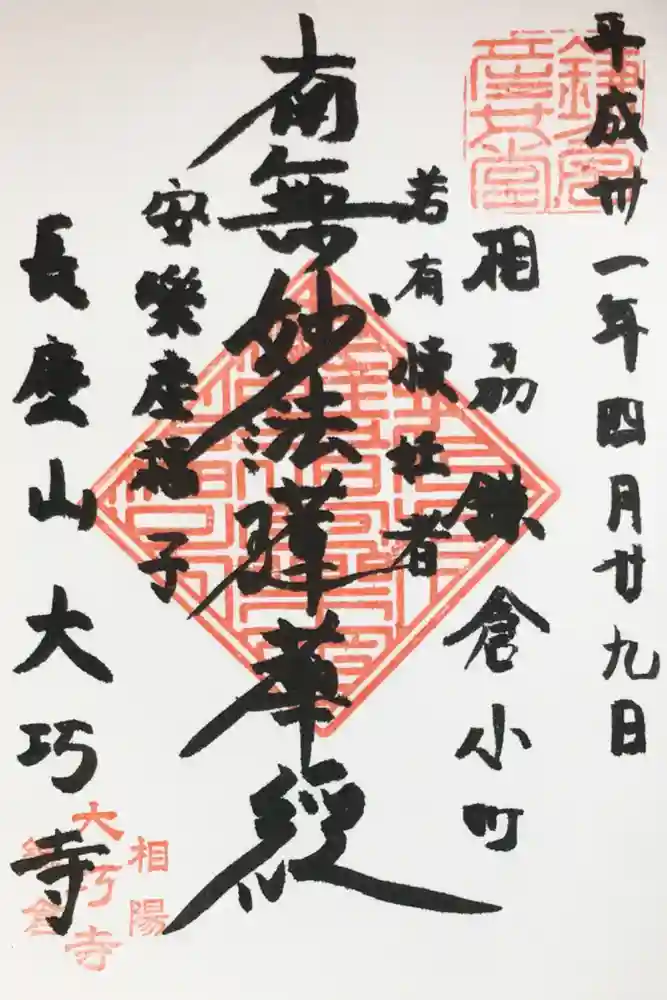 平成卅一年四月廿九日
相刕鎌倉小町
若有懐妊者
南無妙法蓮華経
安樂産福子
長慶山大巧寺
鎌倉
産女堂
相陽
大巧寺
鎌倉